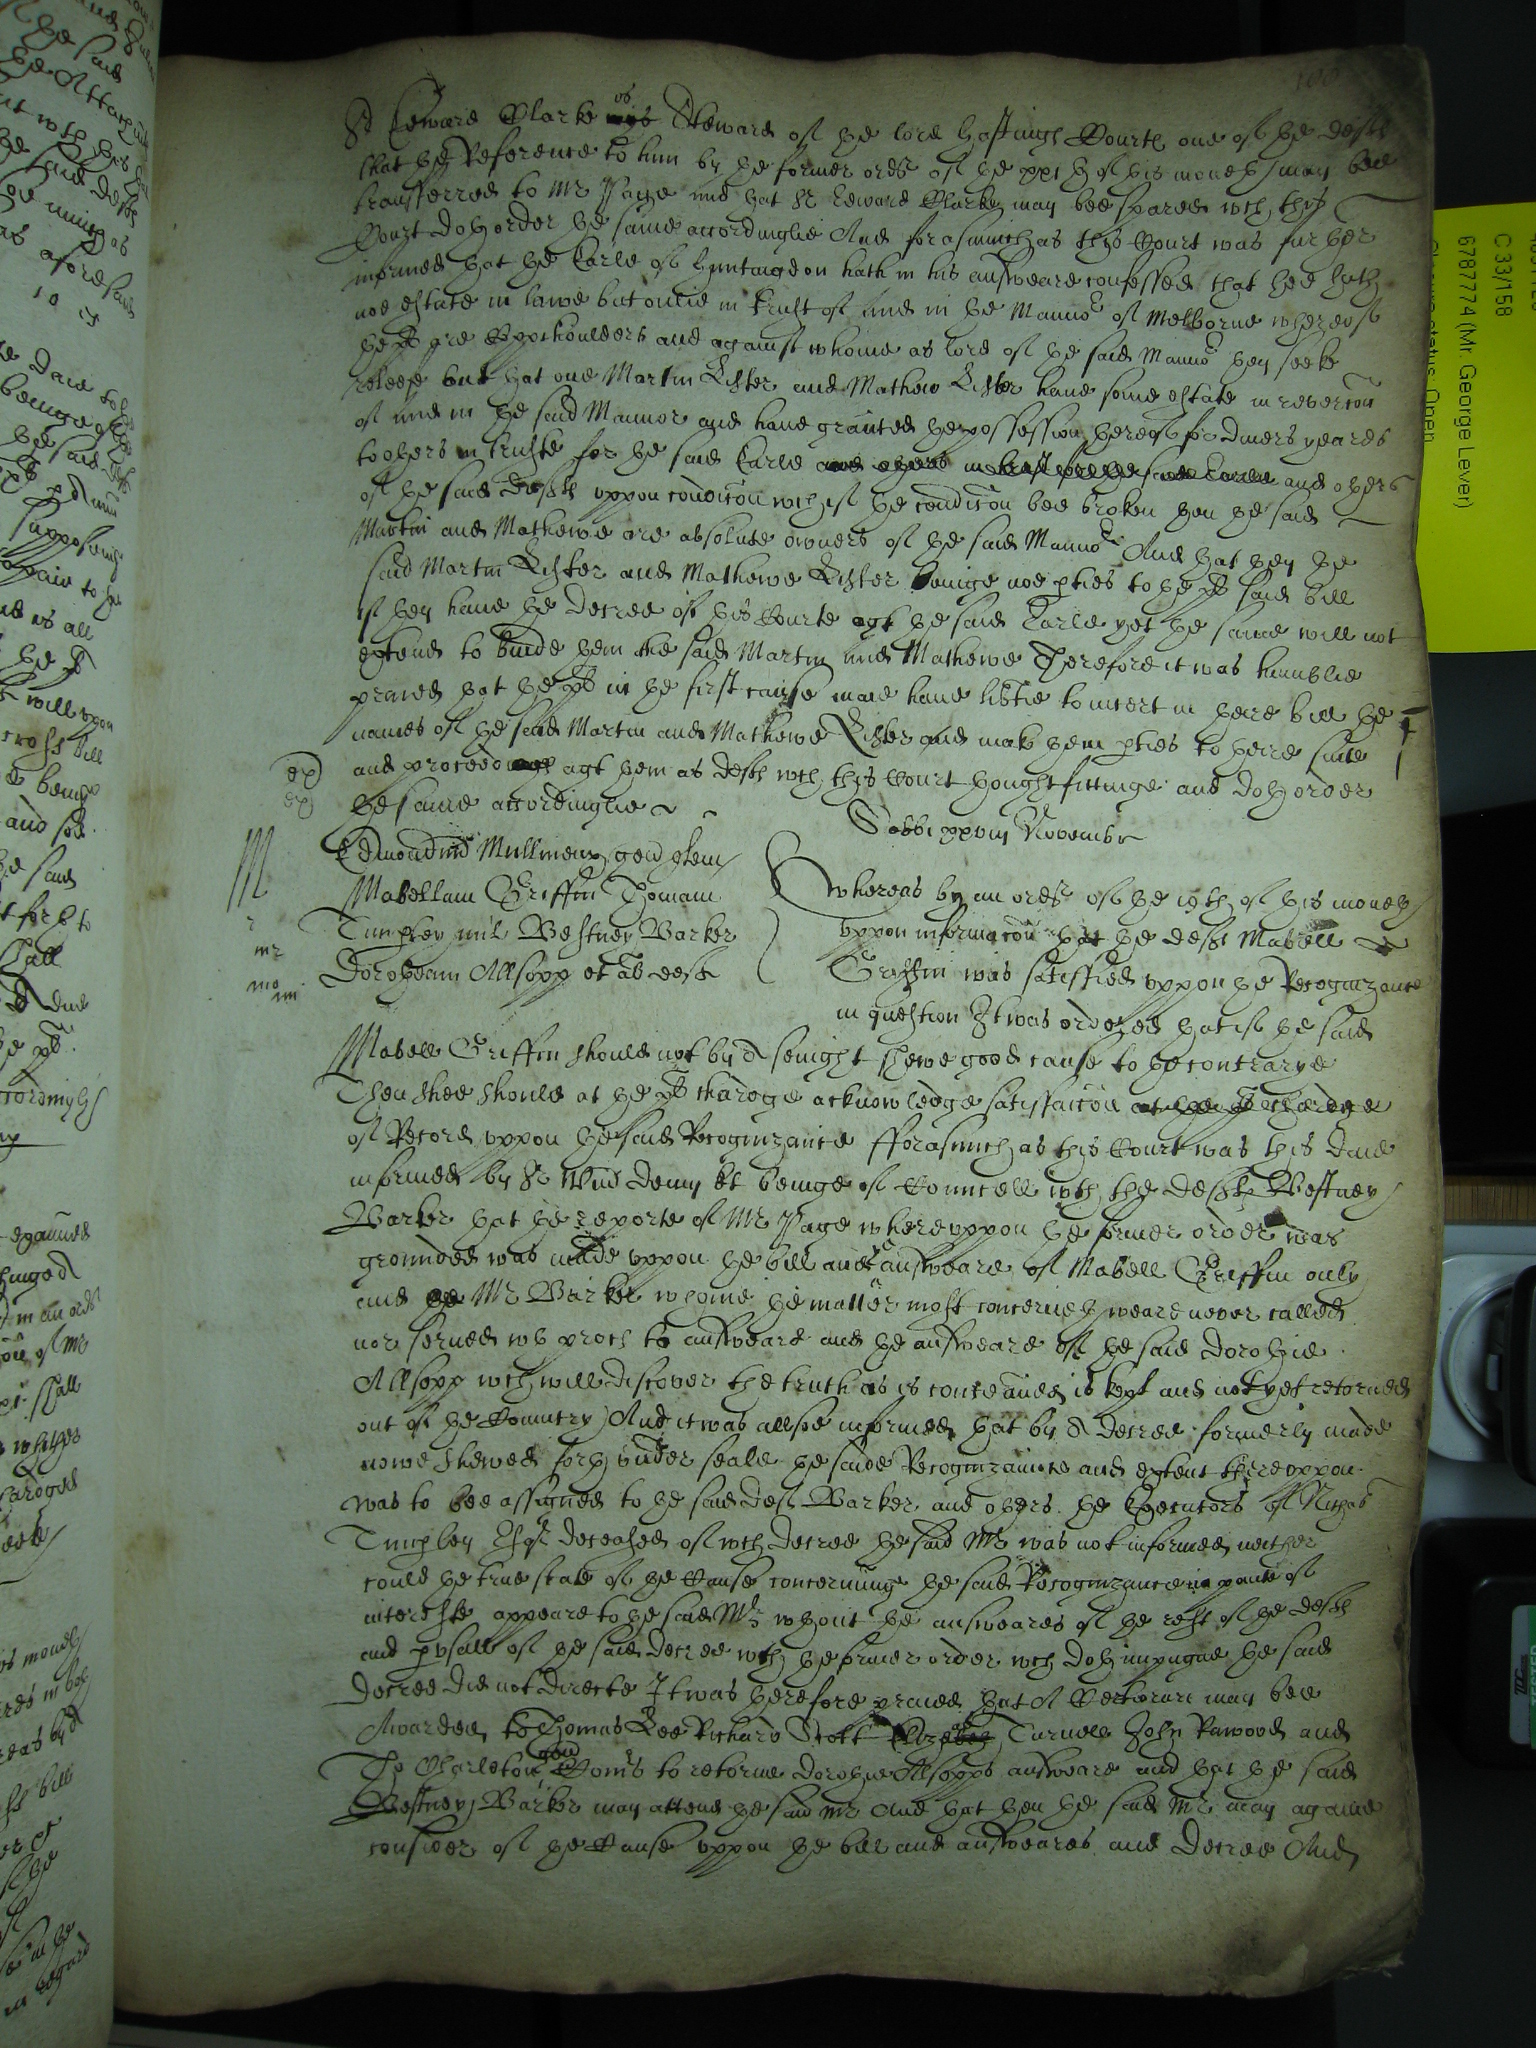 Sr Edward Clarke is Steward of the lord hastings Courte one of the defts
that the Reference to him by the former order of the xxi th of this moneth may bee
transferred to Mr Page and that Sr Edward Clarke may bee spared wch this
Court doth order the same accordinglie And forasmuch as this Court was further
informed that the Earle of huntingdon hath in his answeare confessed that hee hath
noe estate in lawe but onlie in trust of and in the Manno r of Melborne whereof
the pl are Coppihoulders and against whome as lord of the said Manno r they seeke
releefe but that one Martin Lister and Mathew Lister have some estate in revercon
of and in the said Mannor and have granted the possession thereof for divers yeares
to others in truste for the said Earle and others in trust for the said Earle and others
of the said defts uppon condicon wch if the condicon bee broken then the said
Martin and Mathewe are absolute owners of the said Manno r And that they the
said Martin Lister and Mathewe Lister beinge noe pties to the pl said bill
if they have the decree of this Courte agt the said Earle yet the same will not
extend to binde them the said Martin and Mathewe Therefore it was humblie
praied that the pl in the first cause maie have libtie to incert in there bill the
names of the said Martin and Mathewe Lister and make them pties to theire suite
and proceedings agt them as defts wch this Court thought fittinge and doth order
the same accordinglie
Sabbi xxviii Novembr
Edmondus Mullineux gen quer
Mabellam Griffin Thomam
mil Westney Barker
Dorotheam Allsopp et al deft
Whereas by an order of the 19th of this moneth
uppon informacon that the deft Mabell
Griffin was satisfied uppon the Recognizance
in question It was ordered that if the said
Mabell Griffin should not by a senight shewe good cause to the contrarye
Then shee should at the pl chardge acknowledge satisfaccon at the pl chardge
of Record uppon the said Recognizance fforasmuch as this Court was this daie
informed by Sr Wm Denny kt beinge of Councell wth the deft Westney
Barker that the reporte of Mr Page whereuppon the former order was
grounded was made uppon the bill and answeare of Mabell Griffin only
and the Mr Barker whome the matter most concerneth weare never called
nor served wth proces to answeare and the answeare of the said Dorothie
Allsopp wch will discover the truth as is conceaved is kept and not yet retorned
out of the Countrey And it was allsoe informed that by a decree formerly made
nowe shewed forth under seale the saide Recognizance and extent thereuppon
was to bee assigned to the said deft Barker and others the Executors of Nichas
deceased of wch decree the said Mr was not informed neither
could the true state of the Cause concerninge the said Recognizance in pointe of
intereste appeare to the said Mr wthout the answeares of the rest of the defts
and pusall of the said decree wch the former order wch doth impugne the said
decree did not directe It was therefore praied that A Certiorari may bee
Awarded to Thomas Lee Richard Scott Turnell John and
Tho Charleton gen Comrs to retorne Dorothie Allsopps answeare and that the said
Westney Barker may attend the said Mr And that then the said Mr may againe
consider of the Cause uppon the bill and answeares and decree And
C 33/158
6787774 (Mr. George Lever)